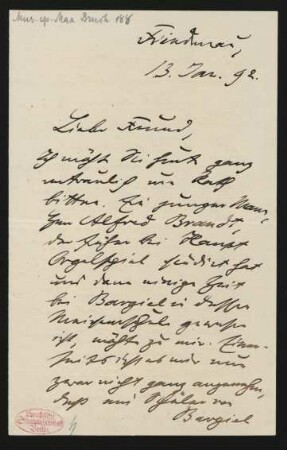 Mus. ep. Max Bruch 188
Friedenau,
13. Jan. 92.
Lieber Freund,
Ich möchte Sie heute ganz
vertraulich um Rath
bitten. Ein junger Mann,
Alfred Brandt,
der früher bei Haupt
Orgelspiel studirt hat
und dann einige Zeit
bei Bargiel in dessen
Meisterschule gewesen
ist, möchte zu mir. Einer-
seits ist es mir nun
zwar nicht ganz angenehm,
daß mir Schüler von
Bargiel